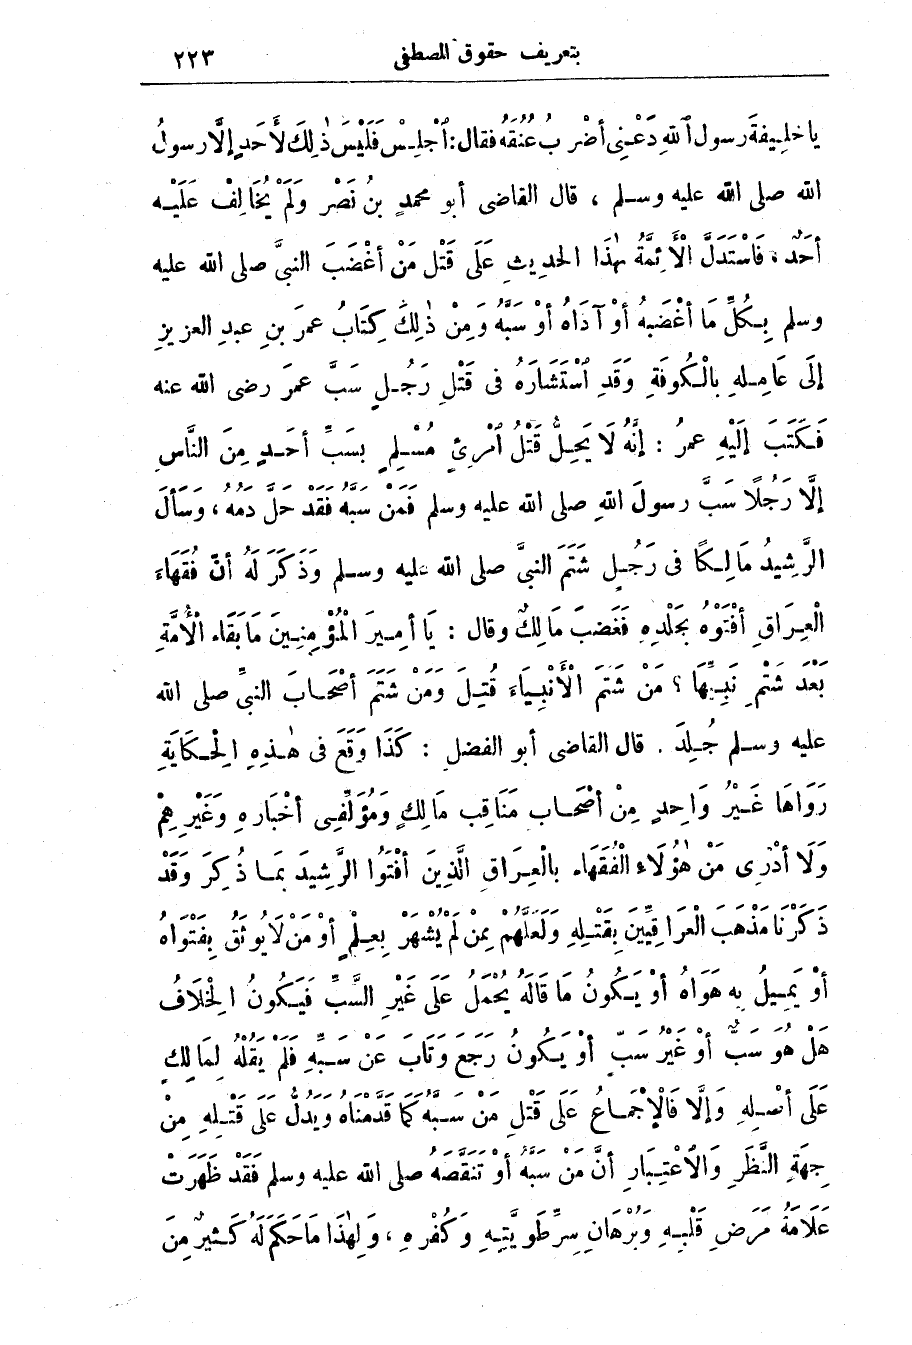 بتعريف حقوق المصطفى ٢٢٣
يا خَلِيفَةَ رسول ٱللهِ دَعْنِى أضْرِبُ عُنُقَهُ فقال: ٱجْلِسْ فَلَيْسَ ذٰلِكَ لأَحَدٍ إلَّا رسولُ
الله صلى الله عليه وسلم ، قال القاضى أبو محمدٍ بنُ نَصْر وَلَمْ يُخَالِفْ عَلَيْهِ
أحَدٌ ، فَاسْتَدَلَّ الْأَئِمَّةُ بِهٰذَا الحديثِ عَلَى قَتْلِ مَنْ أغْضَبَ النبىَّ صلى الله عليه
وسلم بِكُلِّ مَا أغْضَبَهُ أوْ آذَاهُ أوْ سَبَّهُ وَمِنْ ذٰلِكَ كِتَابُ عمرَ بنِ عبدِ العزيزِ
إلَى عَامِلِهِ بِالْكُوفَةِ وَقَدِ ٱسْتَشَارَهُ فى قَتْلِ رَجُلٍ سَبَّ عمرَ رضى الله عنه
فَكَتَبَ إلَيْهِ عمرُ : إنَّهُ لَا يَحِلُّ قَتْلُ ٱمْرِئٍ مُسْلِمٍ بِسَبِّ أحَدٍ مِنَ النَّاسِ
إلَّا رَجُلًا سَبَّ رسولَ اللهِ صلى الله عليه وسلم فَمَنْ سَبَّهُ فَقَدْ حَلَّ دَمُهُ ، وَسَألَ
الرَّشِيدُ مَالِكًا فى رَجُلٍ شَتَمَ النبىَّ صلى الله عليه وسلم وَذَكَرَ لَهُ أنّ فُقَهَاءَ
الْعِرَاقِ أفْتَوْهُ بِجَلْدِهِ فَغَضِبَ مَالِكٌ وقال : يَا أمِيرَ الْمُؤْمِنِينَ مَا بَقَاءُ الْأُمَّةِ
بَعْدَ شَتْمِ نَبِيِّهَا ؟ مَنْ شَتَمَ الْأَنْبِيَاءَ قُتِلَ وَمَنْ شَتَمَ أصْحَابَ النبىِّ صلى الله
عليه وسلم جُلِدَ . قال القاضى أبو الفضلِ : كَذَا وَقَعَ فى هٰذِهِ الْحِكَايَةِ
رَوَاهَا غَيْرُ وَاحِدٍ مِنْ أصْحَابِ مَنَاقِبِ مَالِكٍ وَمُؤَلِّفِى أخْبَارِهِ وَغَيْرِهِمْ
وَلَا أدْرِى مَنْ هٰؤُلَاءِ الْفُقَهَاء بالْعِرَاقِ الَّذِينَ أفْتَوُا الرَّشِيدَ بِمَا ذُكِرَ وَقَدْ
ذَكَرْنَا مَذْهَبَ الْعِرَاقِيِّينَ بِقَتْلِهِ وَلَعَلَّهُمْ مِمَّنْ لَمْ يُشْهَرْ بِعِلْمٍ أوْ مَنْ لَا يُوثَقُ بِفَتْوَاهُ
أوْ يَمِيلُ بِهِ هَوَاهُ أوْ يَكُونُ مَا قَالَهُ يُحْمَلُ عَلَى غَيْرِ السَّبِّ فَيَكُونُ الْخِلَافُ
هَلْ هُوَ سَبٌّ أوْ غَيْرُ سَبٍّ أوْ يَكُونُ رَجَعَ وَتَابَ عَنْ سَبِّهِ فَلَمْ يَقُلْهُ لِمَالِكٍ
عَلَى أصْلِهِ وَإلَّا فَالْإجْمَاعُ عَلَى قَتْلِ مَنْ سَبَّهُ كَمَا قَدَّمْنَاهُ وَيَدُلُّ عَلَى قَتْلِهِ مِنْ
جِهَةِ النَّظَرِ وَالِاعْتِبَارِ أنَّ مَنْ سَبَّهُ أوْ تَنَقَّصَهُ صلى الله عليه وسلم فَقَدْ ظَهَرَتْ
عَلَامَةُ مَرَضِ قَلْبِهِ وَبُرْهَانِ سِرِّ طَوِيَّتِهِ وَكُفْرِهِ ، وَلِهٰذَا مَا حَكَمَ لَهُ كَثِيرٌ مِنَ